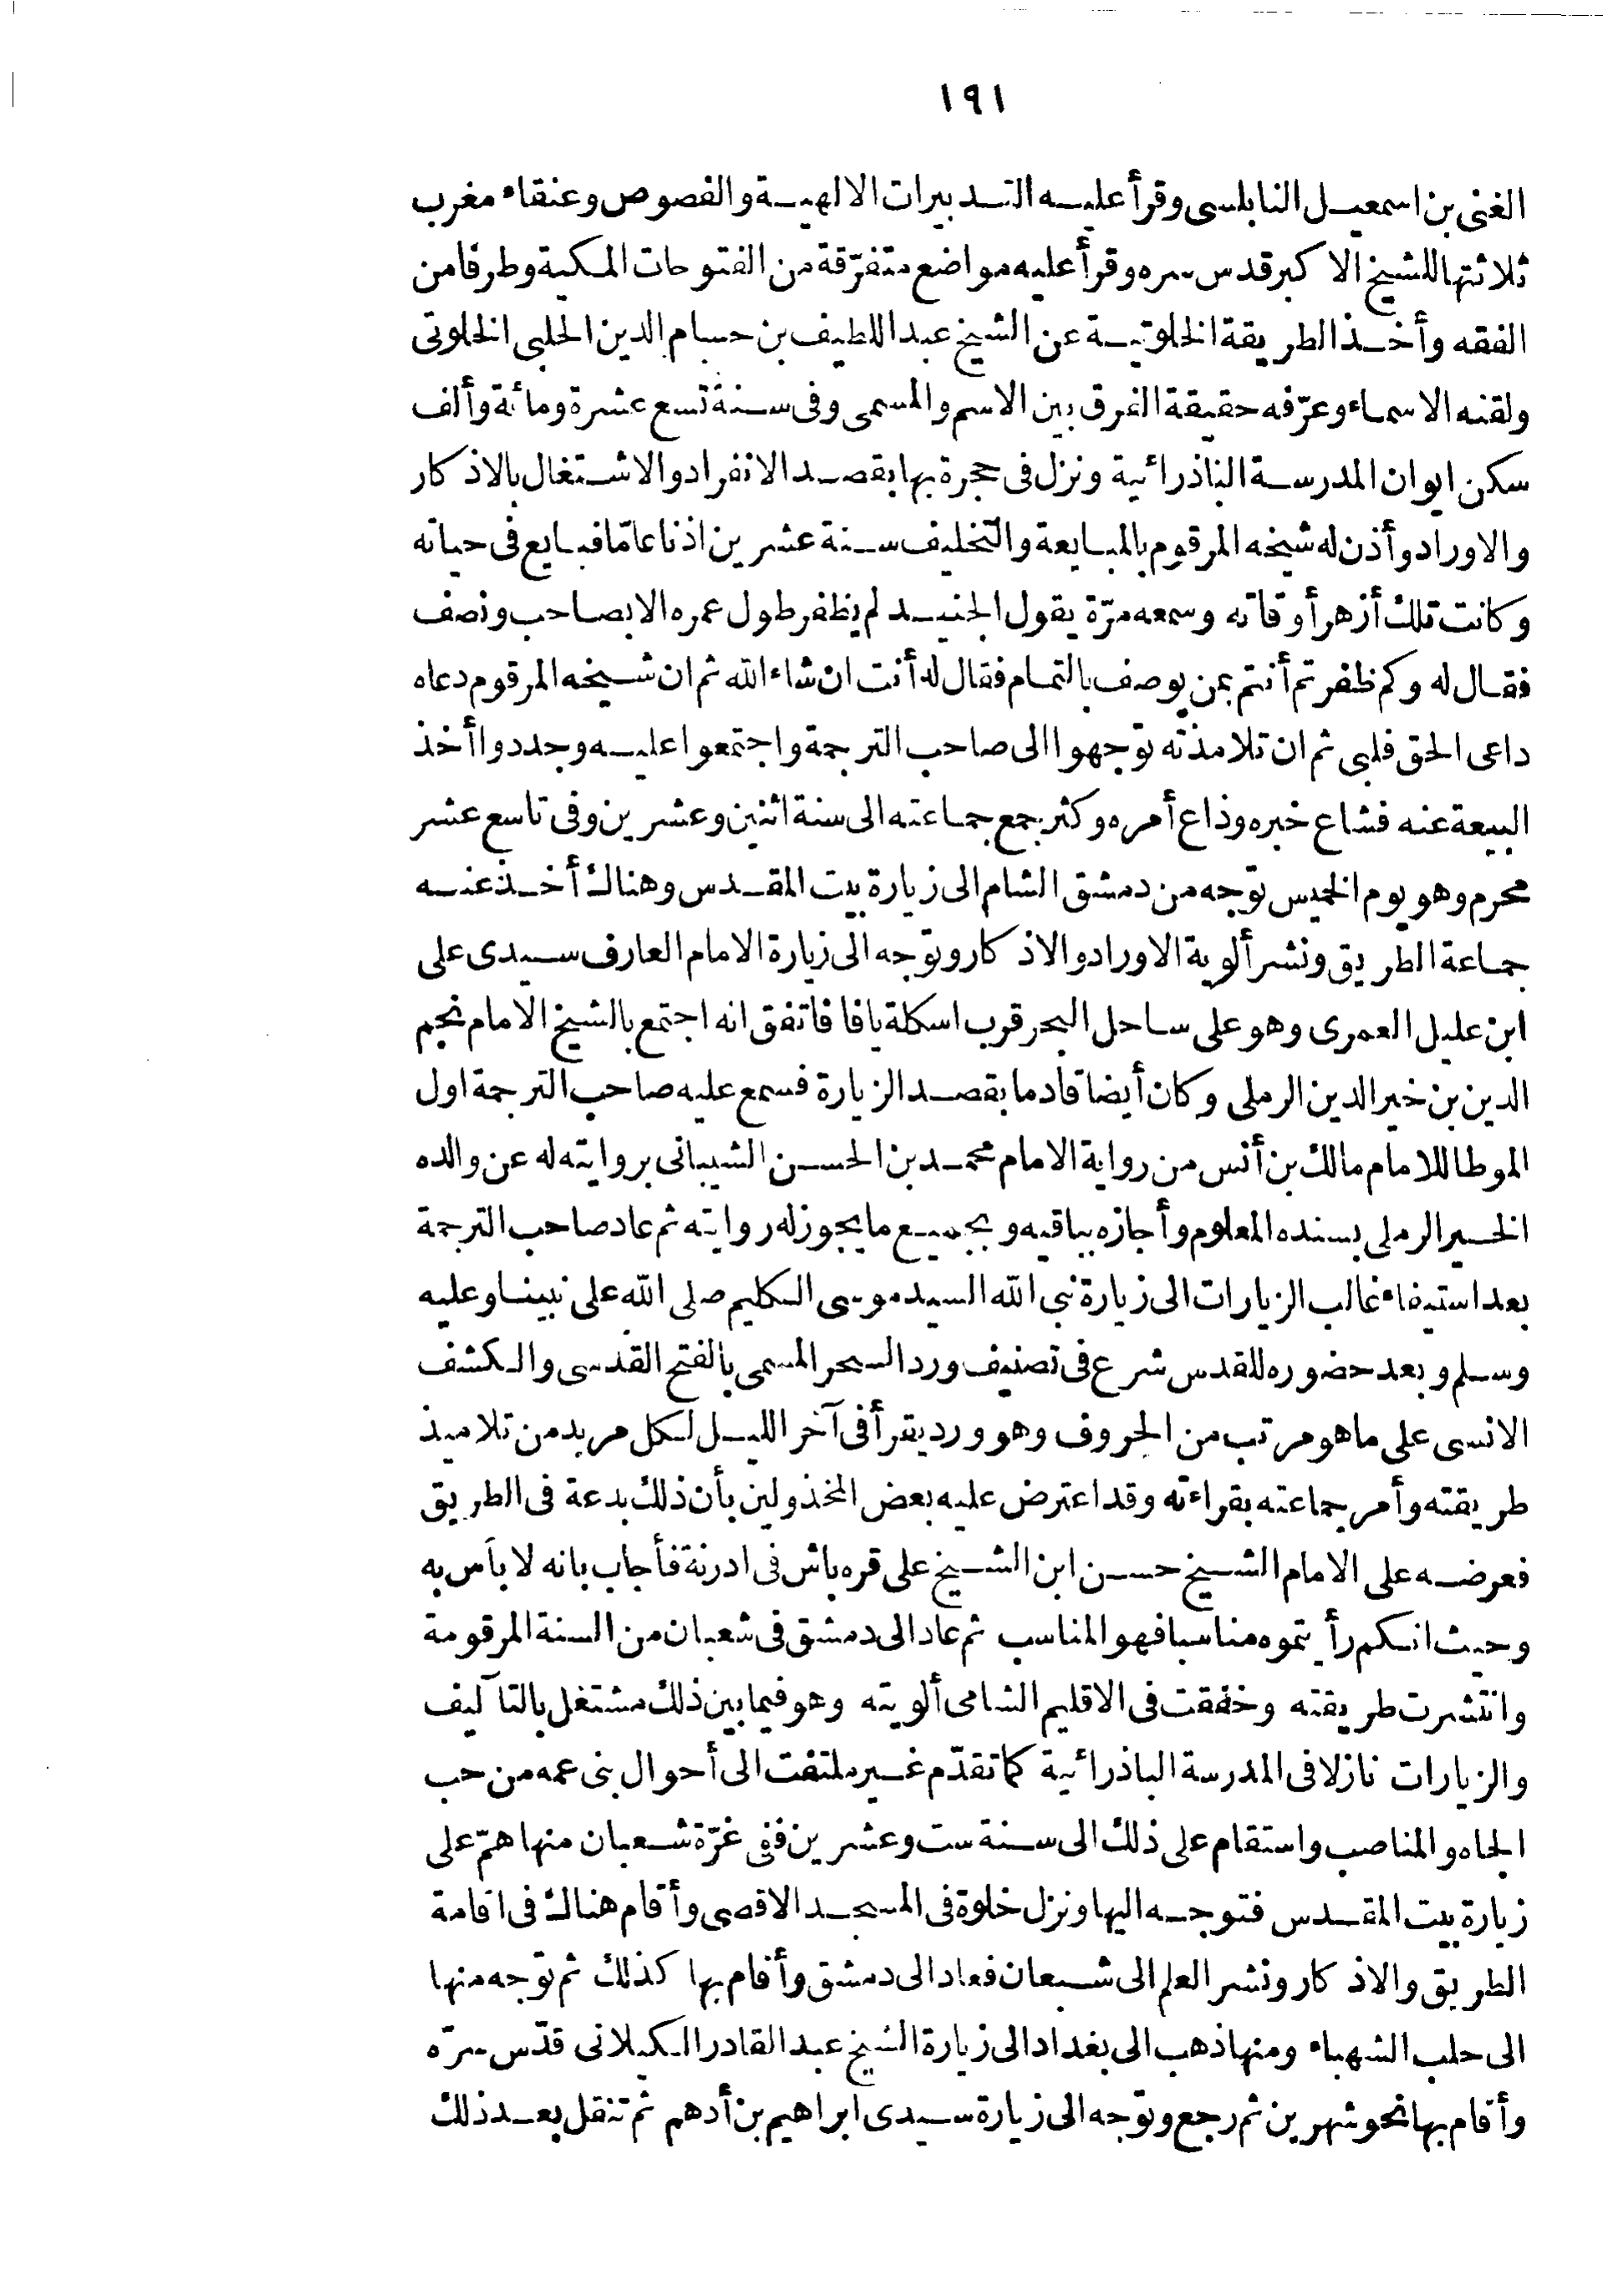 ١٩١
الغنى بن اسمعيل النابلسى وقرأ عليه التدبيرات الالهية والفصوص وعنقاء مغرب
ثلاثتها للشيخ الاكبر قدس سره وقرأ عليه مواضع متفرّقة من الفتوحات المكية وطرفا من
الفقه وأخذ الطريقة الخلوتية عن الشيخ عبد اللطيف بن حسام الدين الحلبى الخلوتى
ولقنه الاسماء وعرّفه حقيقة الفرق بين الاسم والمسمى وفى سنة تسع عشرة ومائة وألف
سكن ايوان المدرسة الباذرائية ونزل فى حجرة بها بقصد الانفراد والاشتغال بالاذكار
والاوراد وأذن له شيخه المرقوم بالمبايعة والتخليف سنة عشرين اذنا عامّا فبايع فى حياته
وكانت تلك أزهر أوقاته وسمعه مرّة يقول الجنيد لم يظفر طول عمره الا بصاحب ونصف
فقال له وكم ظفرتم أنتم بمن يوصف بالتمام فقال له أنت ان شاء الله ثم ان شيخه المرقوم دعاه
داعى الحق فلبى ثم ان تلامذته توجهوا الى صاحب الترجمة واجتمعوا عليه وجددوا أخذ
البيعة عنه فشاع خبره وذاع أمره وكثر جمع جماعته الى سنة اثنين وعشرين وفى تاسع عشر
محرم وهو يوم الخميس توجه من دمشق الشام الى زيارة بيت المقدس وهناك أخذ عنه
جماعة الطريق ونشر ألوية الاوراد والاذكار وتوجه الى زيارة الامام العارف سيدى على
ابن عليل العمرى وهو على ساحل البحر قرب اسكلة يافا فاتفق انه اجتمع بالشيخ الامام نجم
الدين بن خير الدين الرملى وكان أيضا قادما بقصد الزيارة فسمع عليه صاحب الترجمة اول
الموطا للامام مالك بن أنس من رواية الامام محمد بن الحسن الشيبانى بروايته له عن والده
الخير الرملى بسنده المعلوم وأجازه بباقيه وبجميع ما يجوز له روايته ثم عاد صاحب الترجمة
بعد استيفاء غالب الزيارات الى زيارة نبى الله السيد موسى الكليم صلى الله على نبينا وعليه
وسلم وبعد حضوره للقدس شرع فى تصنيف ورد السحر المسمى بالفتح القدسى والكشف
الانسى على ما هو مرتب من الحروف وهو ورد يقرأ فى آخر الليل لكل مريد من تلاميذ
طريقته وأمر جماعته بقراءته وقد اعترض عليه بعض المخذولين بأن ذلك بدعة فى الطريق
فعرضه على الامام الشيخ حسن ابن الشيخ على قره باش فى ادرنة فأجاب بانه لا بأس به
وحيث انكم رأيتموه مناسبا فهو المناسب ثم عاد الى دمشق فى شعبان من السنة المرقومة
وانتشرت طريقته وخفقت فى الاقليم الشامى ألويته وهو فيما بين ذلك مشتغل بالتآليف
والزيارات نازلا فى المدرسة الباذرائية كما تقدّم غير ملتفت الى أحوال بنى عمه من حب
الجاه والمناصب واستقام على ذلك الى سنة ست وعشرين ففى غرّة شعبان منها همّ على
زيارة بيت المقدس فتوجه اليها ونزل خلوة فى المسجد الاقصى وأقام هناك فى اقامة
الطريق والاذكار ونشر العلم الى شعبان فعاد الى دمشق وأقام بها كذلك ثم توّجه منها
الى حلب الشهباء ومنها ذهب الى بغداد الى زيارة الشيخ عبد القادر الكيلانى قدّس سرّه
وأقام بها نحو شهرين ثم رجع وتوّجه الى زيارة سيدى ابراهيم بن أدهم ثم تنقل بعد ذلك